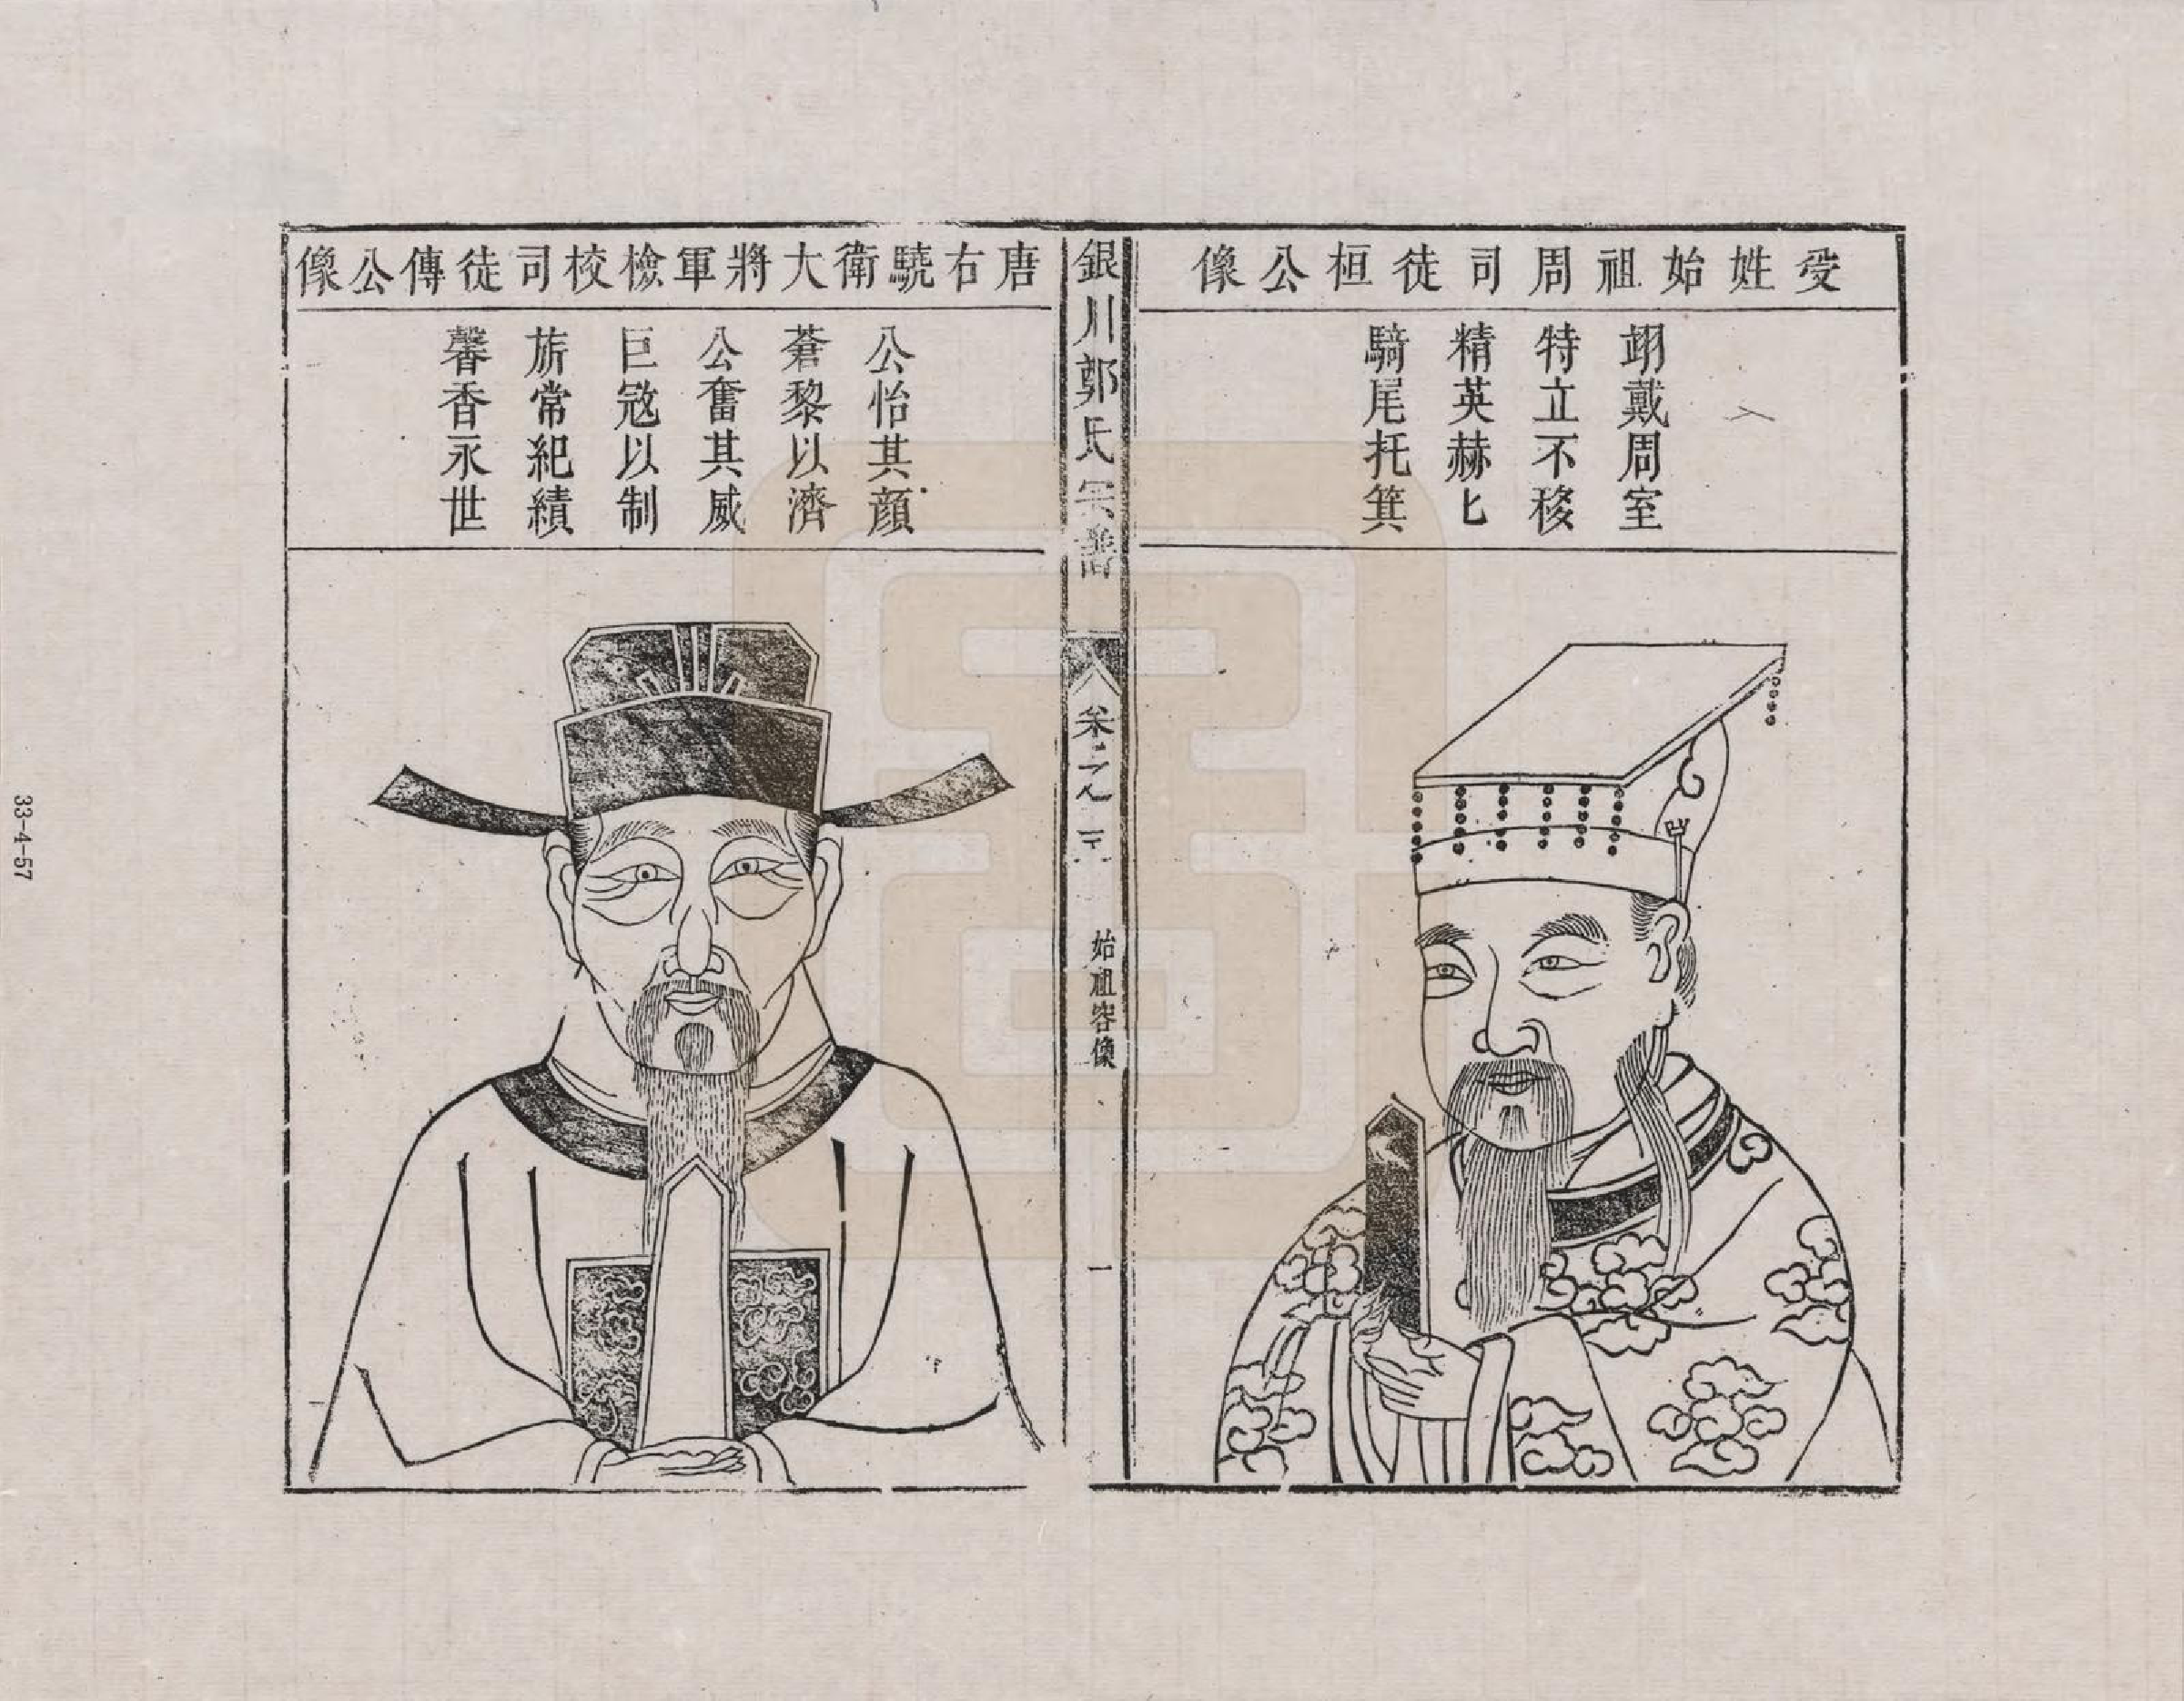 受姓始祖周司徒桓公像
翊戴周室
特立不移
精英赫匕
騎尾托箕
銀川郭氏宗譜
卷之二
始祖容像
一
唐右驍衛大將軍檢校司徒傳公像
公怡其顔
蒼黎以濟
公奮其威
巨冦以制
旂常紀績
馨香永世
33-4-57